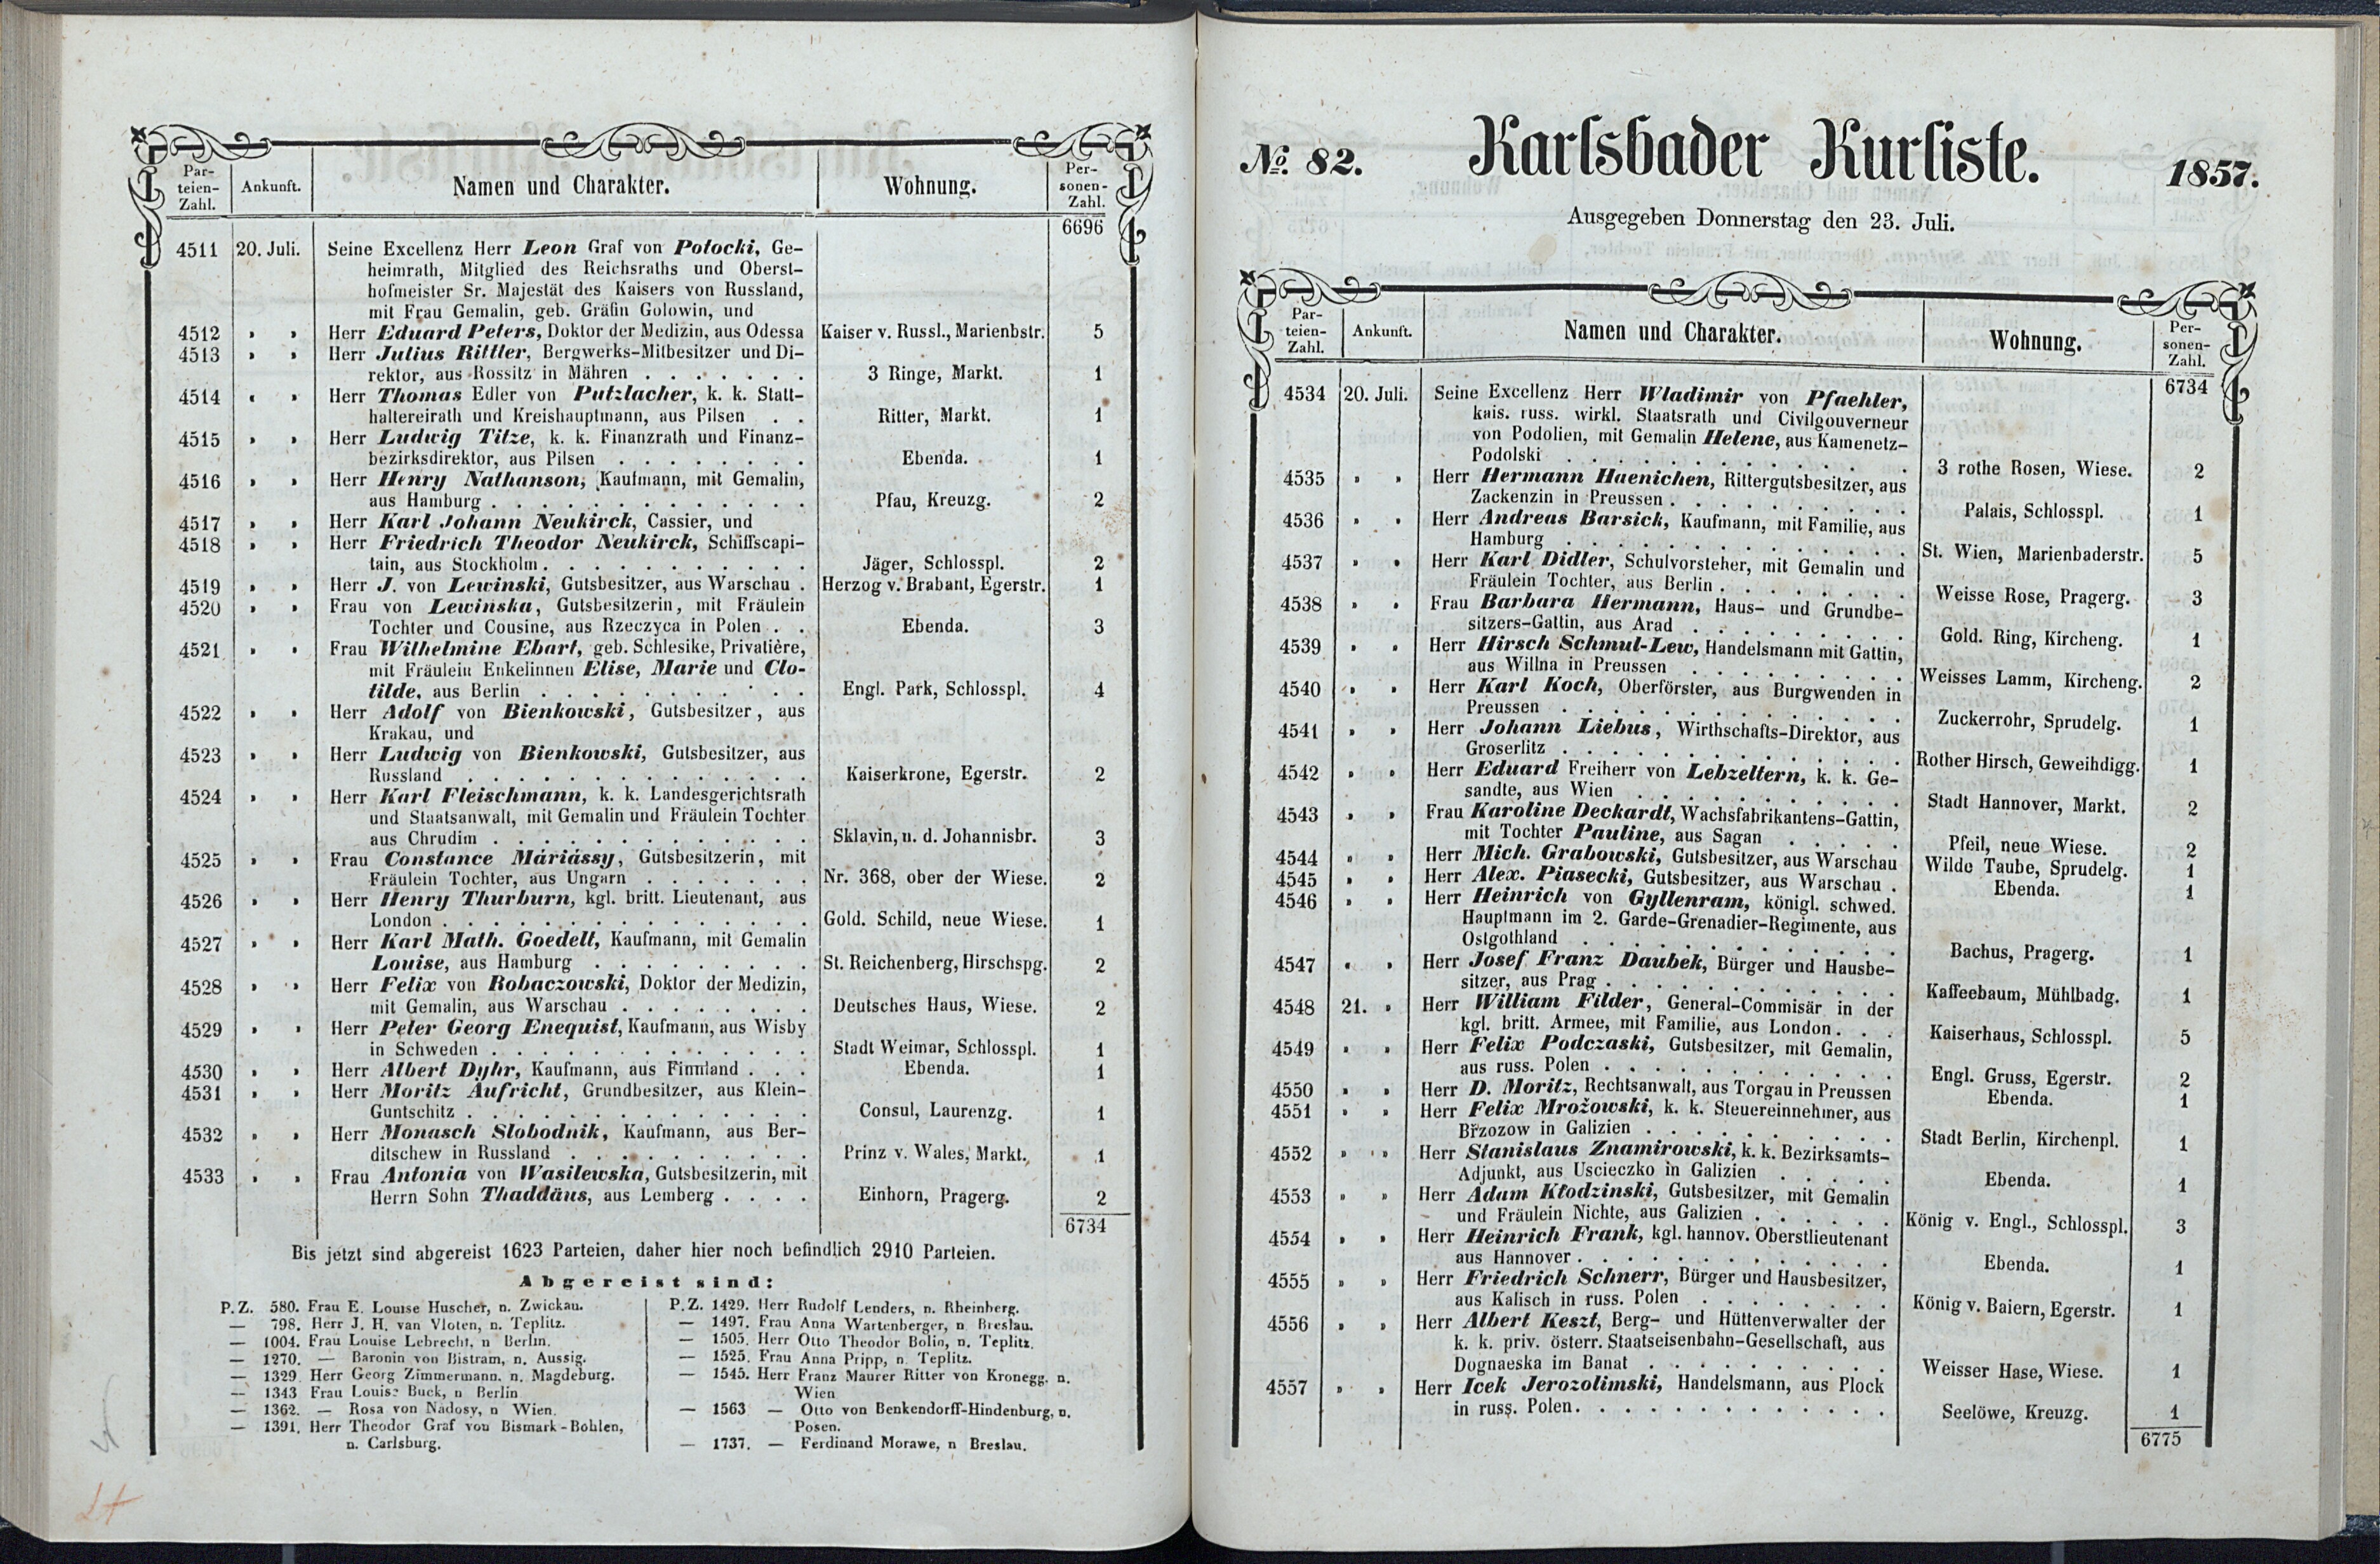 Par-
teien-
Zahl. Ankunft. Namen und Charakter. Wohnung. Per-
sonen-
Zahl.
6696
4511 20. Juli. Seine Excellenz Herr Leon Graf von Potocki, Ge-
heimrath, Mitglied des Reichsraths und Oberst-
hofmeister Sr. Majestät des Kaisers von Russland,
mit Frau Gemalin, geb. Gräfin Golowin, und
4512 » » Herr Eduard Peters, Doktor der Medizin, aus Odessa Kaiser v. Russl., Marienbstr. 5
4513 » » Herr Julius Rittler, Bergwerks-Mitbesitzer und Di-
rektor, aus Rossitz in Mähren . . . . . . . 3 Ringe, Markt. 1
4514 » » Herr Thomas Edler von Putzlacher, k. k. Statt-
haltereirath und Kreishauptmann, aus Pilsen . . Ritter, Markt. 1
4515 » » Herr Ludwig Titze, k. k. Finanzrath und Finanz-
bezirksdirektor, aus Pilsen . . . . . . . . Ebenda. 1
4516 » » Herr Henry Nathanson, Kaufmann, mit Gemalin,
aus Hamburg . . . . . . . . . . . . . Pfau, Kreuzg. 2
4517 » » Herr Karl Johann Neukirck, Cassier, und
4518 » » Herr Friedrich Theodor Neukirck, Schiffscapi-
tain, aus Stockholm . . . . . . . . . . . Jäger, Schlosspl. 2
4519 » » Herr J. von Lewinski, Gutsbesitzer, aus Warschau . Herzog v. Brabant, Egerstr. 1
4520 » » Frau von Lewinska, Gutsbesitzerin, mit Fräulein
Tochter und Cousine, aus Rzeczyca in Polen . . Ebenda. 3
4521 » » Frau Wilhelmine Ebart, geb. Schlesike, Privatière,
mit Fräulein Enkelinnen Elise, Marie und Clo-
tilde, aus Berlin . . . . . . . . . . . Engl. Park, Schlosspl. 4
4522 » » Herr Adolf von Bienkowski, Gutsbesitzer, aus
Krakau, und
4523 » » Herr Ludwig von Bienkowski, Gutsbesitzer, aus
Russland . . . . . . . . . . . . . . Kaiserkrone, Egerstr. 2
4524 » » Herr Karl Fleischmann, k. k. Landesgerichtsrath
und Staatsanwalt, mit Gemalin und Fräulein Tochter
aus Chrudim . . . . . . . . . . . . . Sklavin, u. d. Johannisbr. 3
4525 » » Frau Constance Máriássy, Gutsbesitzerin, mit
Fräulein Tochter, aus Ungarn . . . . . . . Nr. 368, ober der Wiese. 2
4526 » » Herr Henry Thurburn, kgl. britt. Lieutenant, aus
London . . . . . . . . . . . . . . . Gold. Schild, neue Wiese. 1
4527 » » Herr Karl Math. Goedelt, Kaufmann, mit Gemalin
Louise, aus Hamburg . . . . . . . . . St. Reichenberg, Hirschspg. 2
4528 » » Herr Felix von Robaczowski, Doktor der Medizin,
mit Gemalin, aus Warschau . . . . . . . . Deutsches Haus, Wiese. 2
4529 » » Herr Peter Georg Enequist, Kaufmann, aus Wisby
in Schweden . . . . . . . . . . . . . Stadt Weimar, Schlosspl. 1
4530 » » Herr Albert Dyhr, Kaufmann, aus Finnland . . . Ebenda. 1
4531 » » Herr Moritz Aufricht, Grundbesitzer, aus Klein-
Guntschitz . . . . . . . . . . . . . . Consul, Laurenzg. 1
4532 » » Herr Monasch Slobodnik, Kaufmann, aus Ber-
ditschew in Russland . . . . . . . . . . Prinz v. Wales, Markt. 1
4533 » » Frau Antonia von Wasilewska, Gutsbesitzerin, mit
Herrn Sohn Thaddäus, aus Lemberg . . . . Einhorn, Pragerg. 2
6734
Bis jetzt sind abgereist 1623 Parteien, daher hier noch befindlich 2910 Parteien.
Abgereist sind:
P. Z. 580. Frau E. Louise Huscher, n. Zwickau.
— 798. Herr J. H. van Vloten, n. Teplitz.
— 1004. Frau Louise Lebrecht, n Berlin.
— 1270. — Baronin von Bistram, n. Aussig.
— 1329 Herr Georg Zimmermann. n. Magdeburg.
— 1343 Frau Louise Buck, n Berlin
— 1362. — Rosa von Nadosy, n Wien.
— 1391. Herr Theodor Graf von Bismark-Bohlen,
n. Carlsburg.
P. Z. 1429. Herr Rudolf Lenders, n. Rheinberg.
— 1497. Frau Anna Wartenberger, n Breslau.
— 1505. Herr Otto Theodor Bolin, n. Teplitz.
— 1525. Frau Anna Pripp, n. Teplitz.
— 1545. Herr Franz Maurer Ritter von Kronegg, n.
Wien
— 1563 — Otto von Benkendorff-Hindenburg, n.
Posen.
— 1737. — Ferdinand Morawe, n Breslau.
№. 82. Karlsbader Kurliste. 1857.
Ausgegeben Donnerstag den 23. Juli.
Par-
teien-
Zahl. Ankunft. Namen und Charakter. Wohnung. Per-
sonen-
Zahl.
6734
4534 20. Juli. Seine Excellenz Herr Wladimir von Pfaehler,
kais. russ. wirkl. Staatsrath und Civilgouverneur
von Podolien, mit Gemalin Helene, aus Kamenetz-
Podolski . . . . . . . . . . . . . 3 rothe Rosen, Wiese. 2
4535 » » Herr Hermann Haenichen, Rittergutsbesitzer, aus
Zackenzin in Preussen . . . . . . . . . Palais, Schlosspl. 1
4536 » » Herr Andreas Barsick, Kaufmann, mit Familie, aus
Hamburg . . . . . . . . . . . . . St. Wien, Marienbaderstr. 5
4537 » » Herr Karl Didler, Schulvorsteher, mit Gemalin und
Fräulein Tochter, aus Berlin . . . . . . . . Weisse Rose, Pragerg. 3
4538 » » Frau Barbara Hermann, Haus- und Grundbe-
sitzers-Gattin, aus Arad . . . . . . . . . Gold. Ring, Kircheng. 1
4539 » » Herr Hirsch Schmul-Lew, Handelsmann mit Gattin,
aus Willna in Preussen . . . . . . . . . Weisses Lamm, Kircheng. 2
4540 » » Herr Karl Koch, Oberförster, aus Burgwenden in
Preussen . . . . . . . . . . . . . Zuckerrohr, Sprudelg. 1
4541 » » Herr Johann Liebus, Wirthschafts-Direktor, aus
Groserlitz . . . . . . . . . . . . . Rother Hirsch, Geweihdigg. 1
4542 » » Herr Eduard Freiherr von Lebzeltern, k. k. Ge-
sandte, aus Wien . . . . . . . . . . . Stadt Hannover, Markt. 2
4543 » » Frau Karoline Deckardt, Wachsfabrikantens-Gattin,
mit Tochter Pauline, aus Sagan . . . . . Pfeil, neue Wiese. 2
4544 » » Herr Mich. Grabowski, Gutsbesitzer, aus Warschau Wilde Taube, Sprudelg. 1
4545 » » Herr Alex. Piasecki, Gutsbesitzer, aus Warschau . Ebenda. 1
4546 » » Herr Heinrich von Gyllenram, königl. schwed.
Hauptmann im 2. Garde-Grenadier-Regimente, aus
Ostgothland . . . . . . . . . . . . Bachus, Pragerg. 1
4547 » » Herr Josef Franz Daubek, Bürger und Hausbe-
sitzer, aus Prag . . . . . . . . . . . . Kaffeebaum, Mühlbadg. 1
4548 21. » Herr William Filder, General-Commisär in der
kgl. britt. Armee, mit Familie, aus London . . . Kaiserhaus, Schlosspl. 5
4549 » » Herr Felix Podczaski, Gutsbesitzer, mit Gemalin,
aus russ. Polen . . . . . . . . . . . . Engl. Gruss, Egerstr. 2
4550 » » Herr D. Moritz, Rechtsanwalt, aus Torgau in Preussen Ebenda. 1
4551 » » Herr Felix Mrožowski, k. k. Steuereinnehmer, aus
Břzozow in Galizien . . . . . . . . . . Stadt Berlin, Kirchenpl. 1
4552 » » Herr Stanislaus Znamirowski, k. k. Bezirksamts-
Adjunkt, aus Uscieczko in Galizien . . . . . Ebenda. 1
4553 » » Herr Adam Kłodzinski, Gutsbesitzer, mit Gemalin
und Fräulein Nichte, aus Galizien . . . . . . König v. Engl., Schlosspl. 3
4554 » » Herr Heinrich Frank, kgl. hannov. Oberstlieutenant
aus Hannover . . . . . . . . . . . . Ebenda. 1
4555 » » Herr Friedrich Schnerr, Bürger und Hausbesitzer,
aus Kalisch in russ. Polen . . . . . . . . König v. Baiern, Egerstr. 1
4556 » » Herr Albert Keszt, Berg- und Hüttenverwalter der
k. k. priv. österr. Staatseisenbahn-Gesellschaft, aus
Dognaeska im Banat . . . . . . . . . . Weisser Hase, Wiese. 1
4557 » » Herr Icek Jerozolimski, Handelsmann, aus Plock
in russ. Polen . . . . . . . . . . . . . Seelöwe, Kreuzg. 1
6775